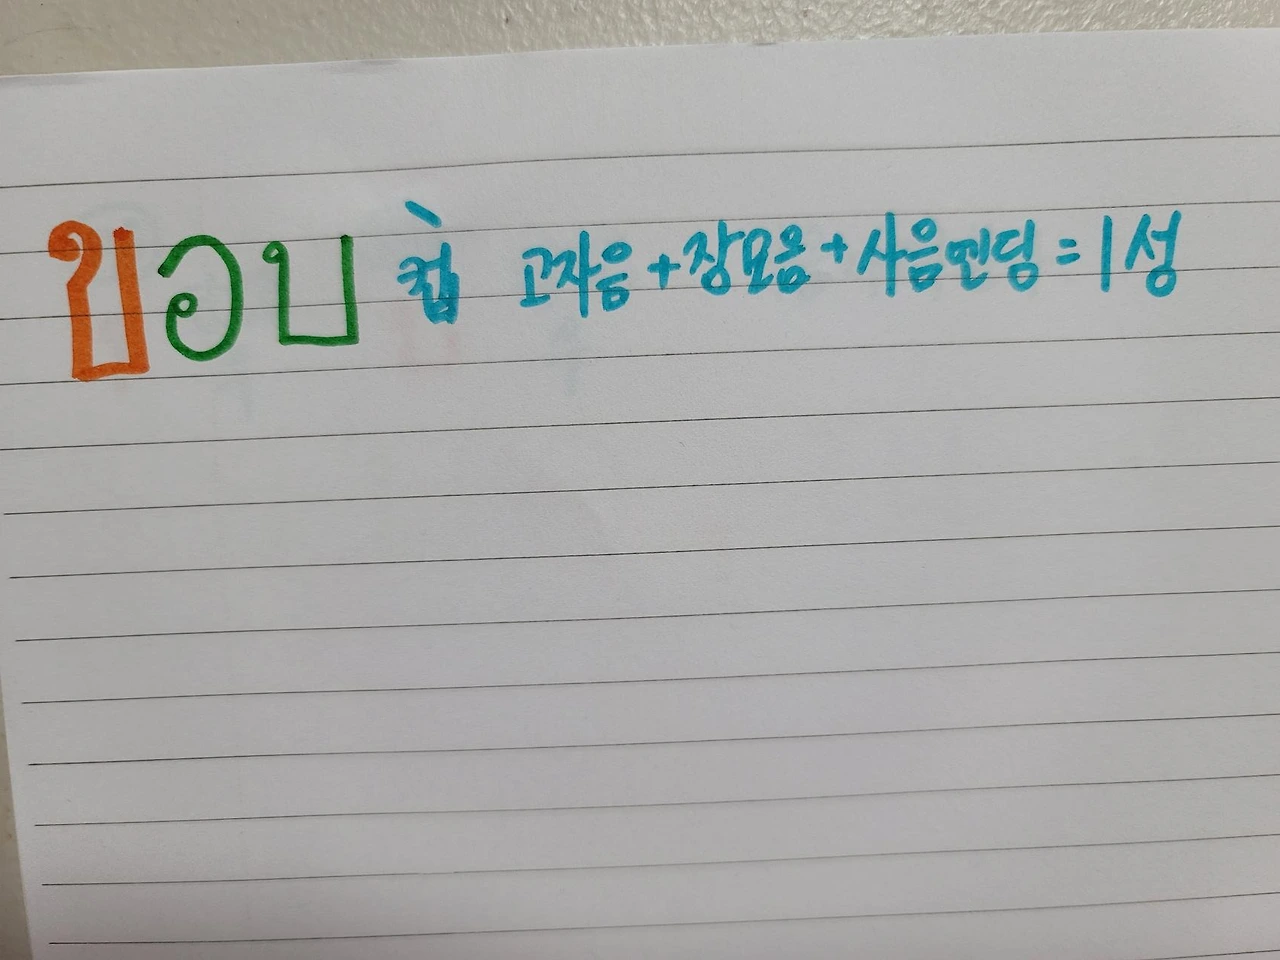 ขอบ 컵 고자음+장모음+사음엔딩=1성